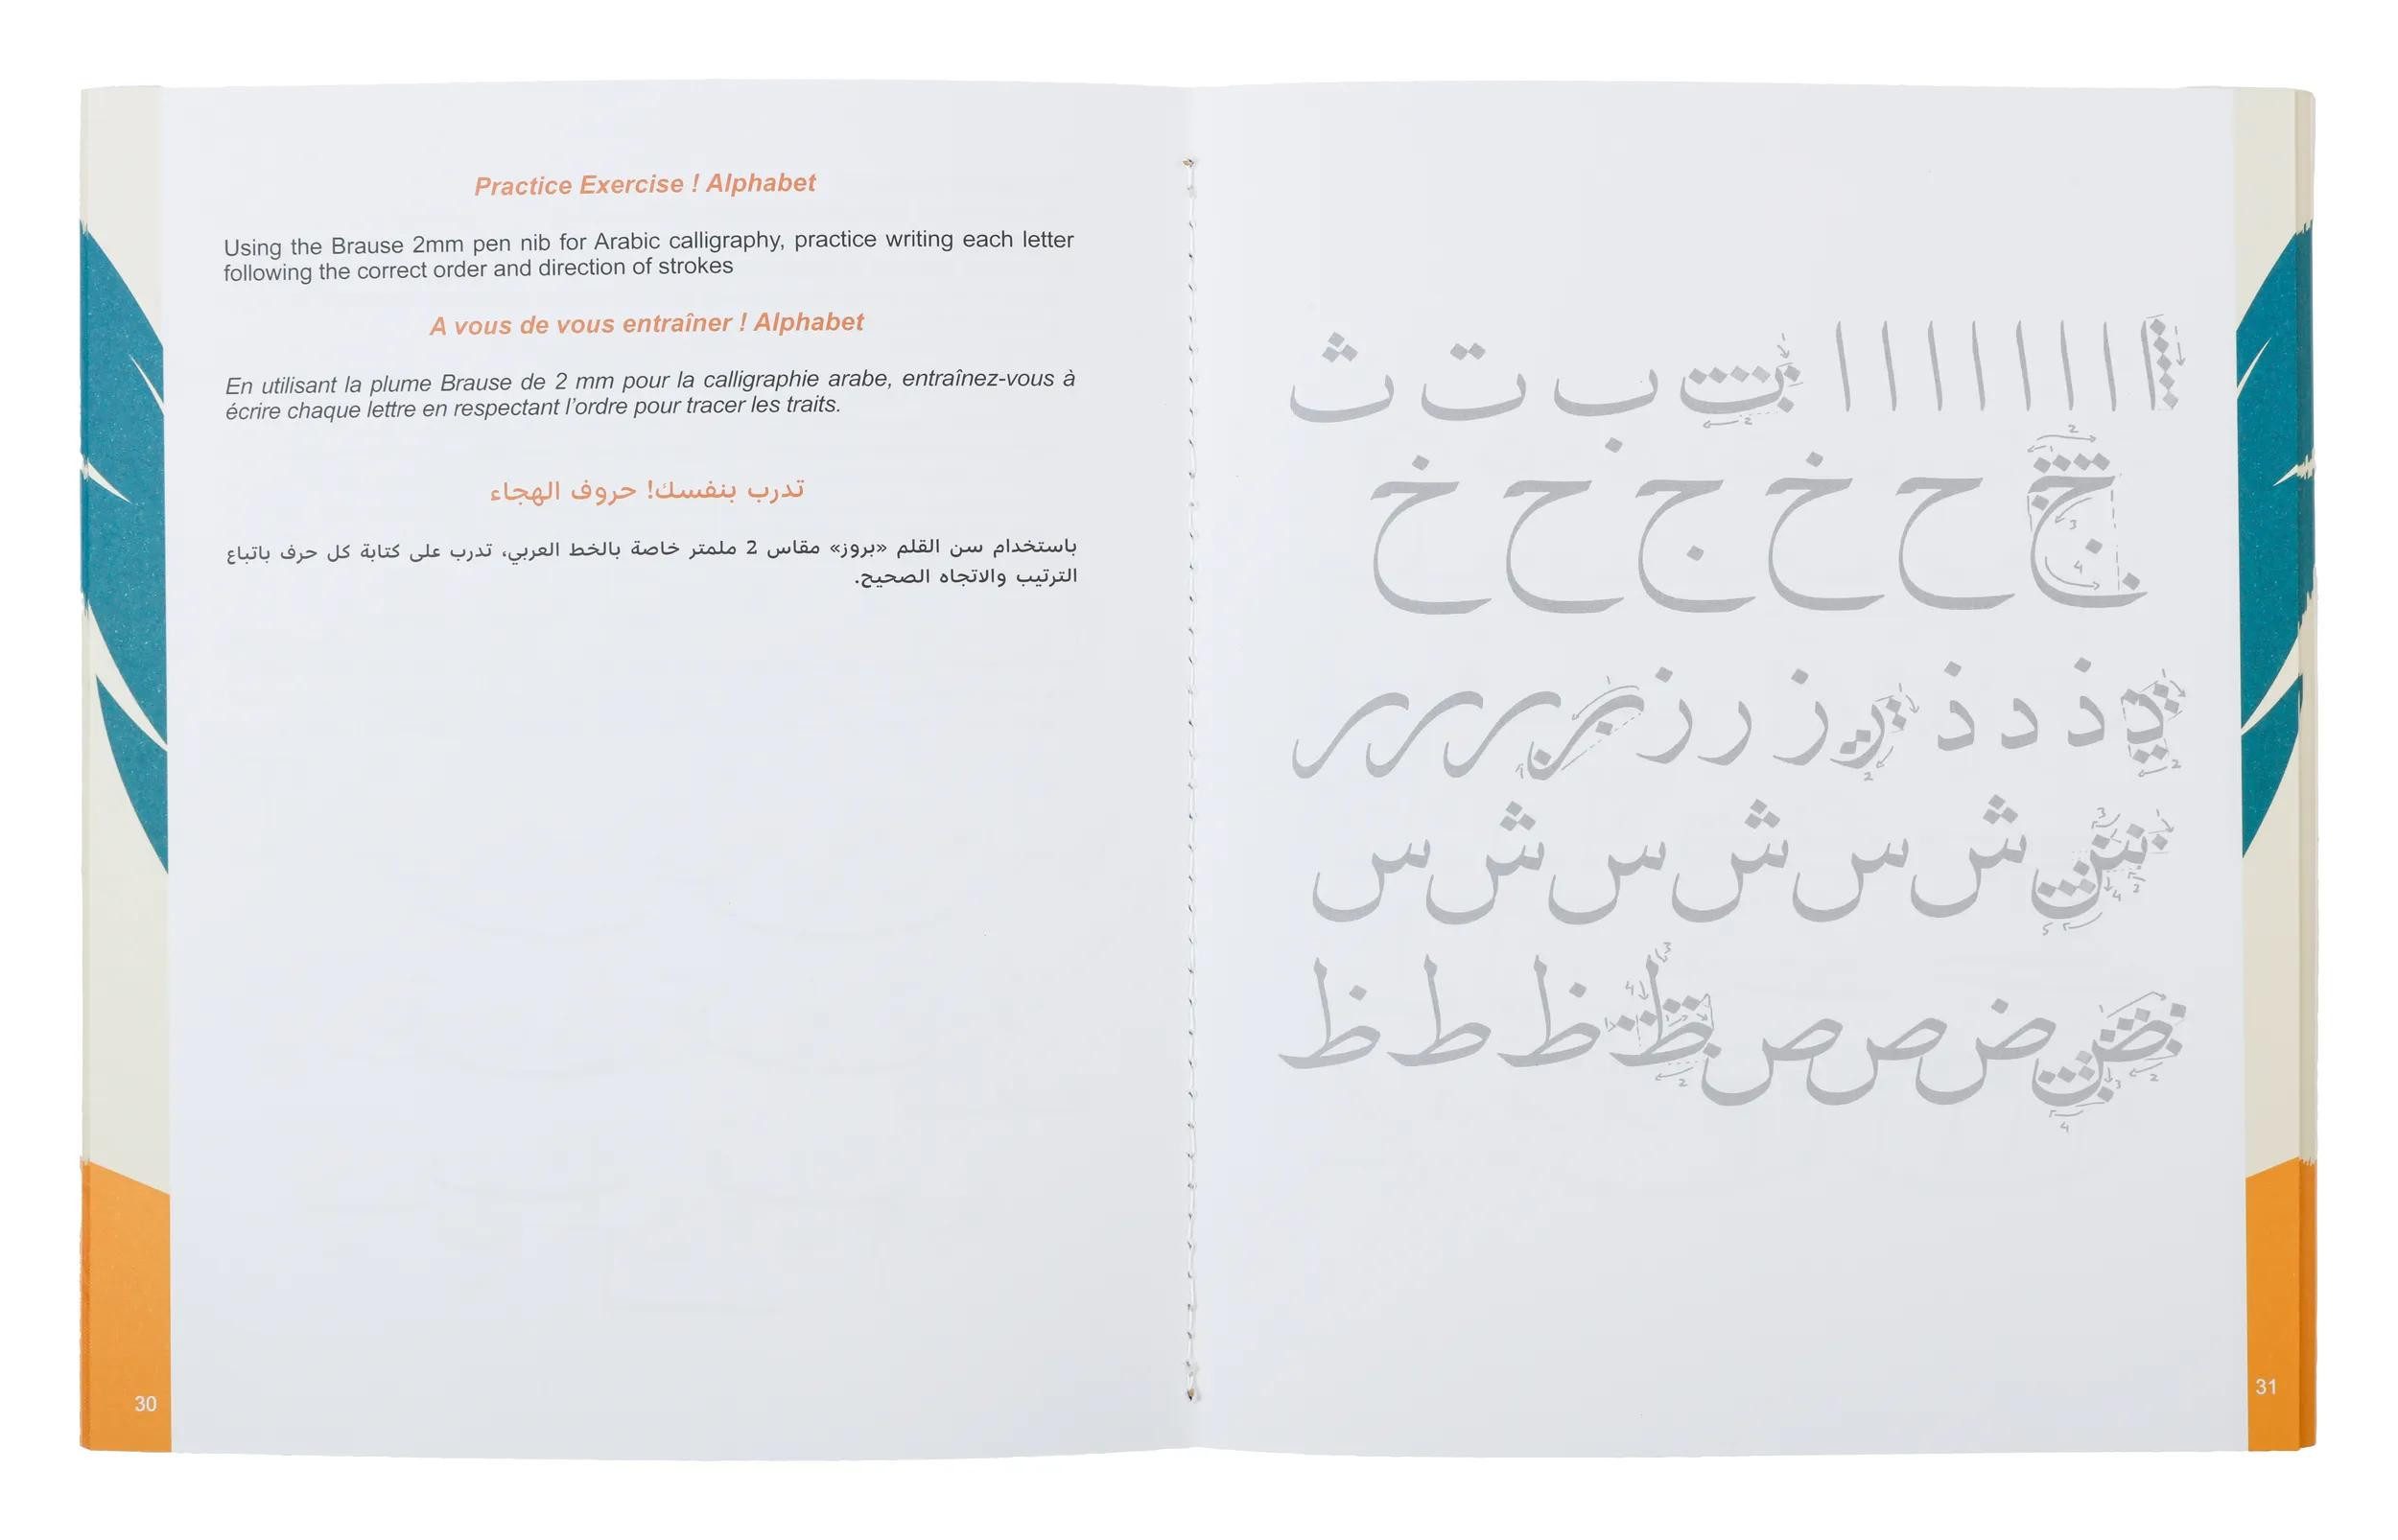 Practice Exercise ! Alphabet
Using the Brause 2mm pen nib for Arabic calligraphy, practice writing each letter
following the correct order and direction of strokes
A vous de vous entraîner ! Alphabet
En utilisant la plume Brause de 2 mm pour la calligraphie arabe, entraînez-vous à
écrire chaque lettre en respectant l'ordre pour tracer les traits.
تدرب بنفسك! حروف الهجاء
باستخدام سن القلم «بروز» مقاس 2 ملمتر خاصة بالخط العربي، تدرب على كتابة كل حرف باتباع
الترتيب والاتجاه الصحيح.
30
ا ا ا ا ا ا ا ا ب ب ت ث
ج ح خ ج ح خ
د ذ د ذ ر ز ر ز ر ر ر ر
س ش س ش س ش س
ص ض ص ص ط ظ ط ظ
31